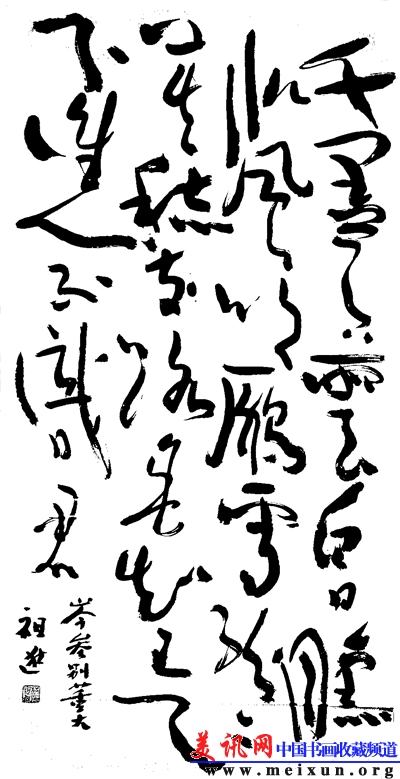 千里黄雲白日曛
北風吹雁雪紛紛
莫愁前路無知己天
下誰人不識君
岑参别董大
祖
美讯网 中国书画收藏频道
www.meixun.org